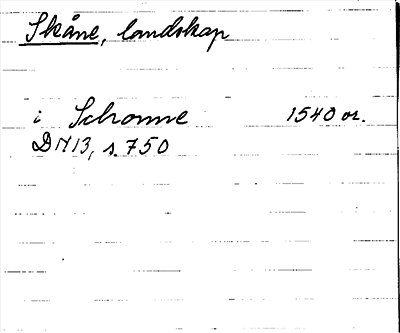 Skåne, landskap
i Schonne 1540 or.
DN 13, s. 750